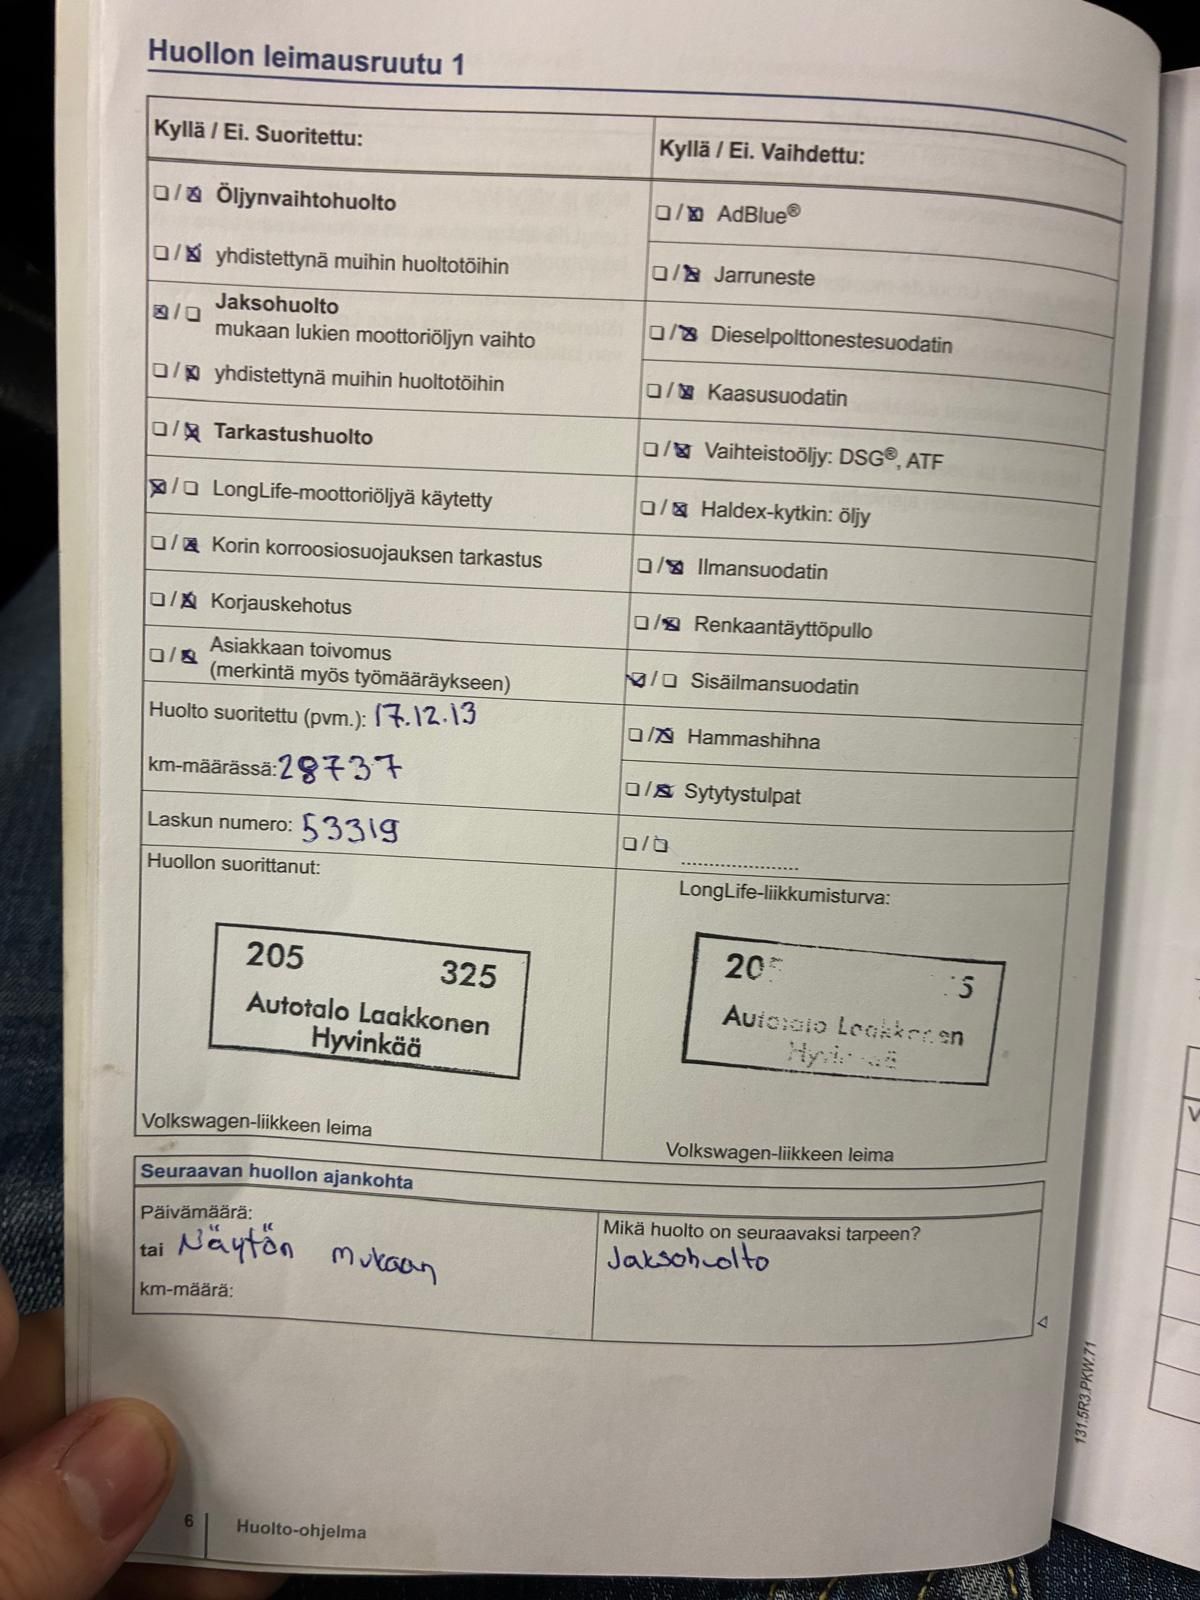 Huollon leimausruutu 1
Kyllä / Ei. Suoritettu:
☐/☒ Öljynvaihtohuolto
☐/☒ yhdistettynä muihin huoltotöihin
☒/☐ Jaksohuolto
mukaan lukien moottoriöljyn vaihto
☐/☒ yhdistettynä muihin huoltotöihin
☐/☒ Tarkastushuolto
☒/☐ LongLife-moottoriöljyä käytetty
☐/☒ Korin korroosiosuojauksen tarkastus
☐/☒ Korjauskehotus
☐/☒ Asiakkaan toivomus
(merkintä myös työmääräykseen)
Huolto suoritettu (pvm.): 17.12.13
km-määrässä: 28737
Laskun numero: 53319
Huollon suorittanut:
205 325
Autotalo Laakkonen
Hyvinkää
Volkswagen-liikkeen leima
Kyllä / Ei. Vaihdettu:
☐/☒ AdBlue®
☐/☒ Jarruneste
☐/☒ Dieselpolttonestesuodatin
☐/☒ Kaasusuodatin
☐/☒ Vaihteistoöljy: DSG®, ATF
☐/☒ Haldex-kytkin: öljy
☐/☒ Ilmansuodatin
☐/☒ Renkaantäyttöpullo
☒/☐ Sisäilmansuodatin
☐/☒ Hammashihna
☐/☒ Sytytystulpat
☐/☐ ....................
LongLife-liikkumisturva:
Autotalo Laakkonen
Volkswagen-liikkeen leima
Seuraavan huollon ajankohta
Päivämäärä:
tai Näytön mukaan
km-määrä:
Mikä huolto on seuraavaksi tarpeen?
Jaksohuolto
131.5R3.PKW.71
6 Huolto-ohjelma